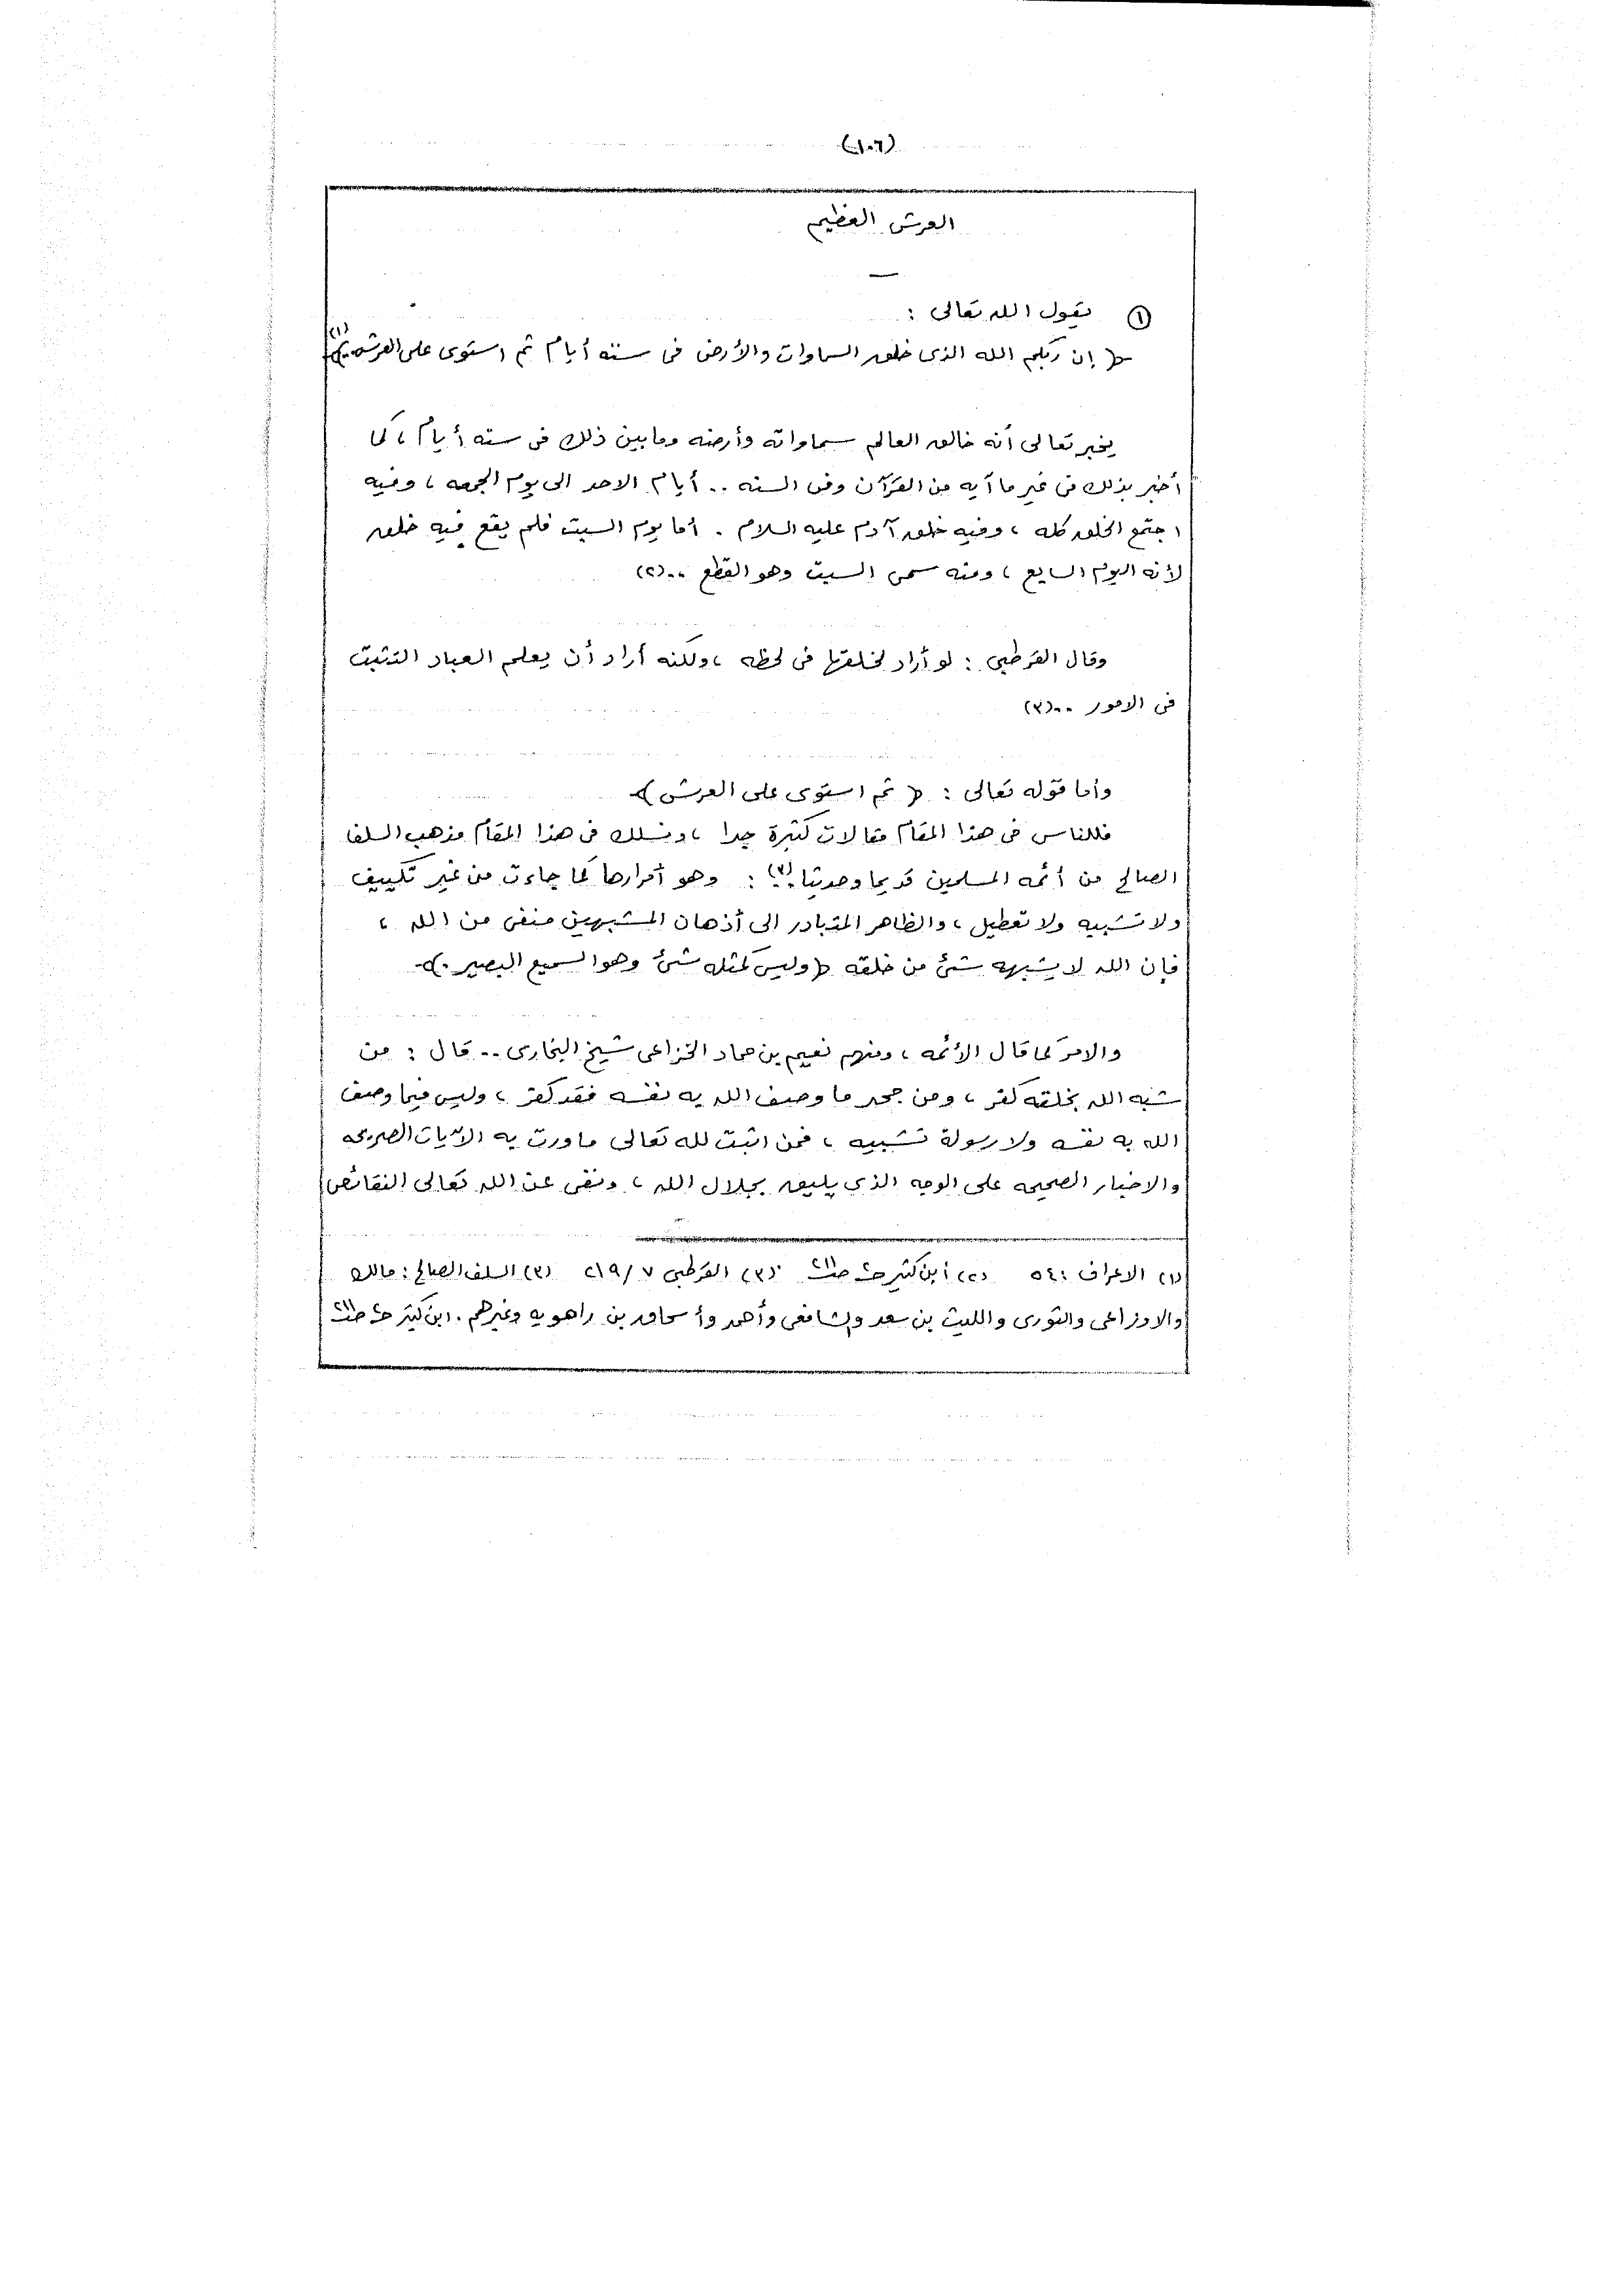 (١٠٦)
العرش العظيم
١ يقول الله تعالى :
﴿ إن ربكم الله الذى خلق السماوات والأرض فى ستة أيام ثم استوى على العرش .. ﴾ (١)
يخبر تعالى أنه خالق العالم سماواته وأرضه وما بين ذلك فى سته أيام ، كما
أخبر بذلك فى غير ما آيه من القرآن وفى السنه .. أيام الاحد الى يوم الجمعه ، وفيه
اجتمع الخلق كله ، وفيه خلق آدم عليه السلام . أما يوم السبت فلم يقع فيه خلق
لأنه اليوم السابع ، ومنه سمى السبت وهو القطع .. (٢)
وقال القرطبى : لو أراد لخلقها فى لحظه ، ولكنه أراد أن يعلم العباد التثبت
فى الامور .. (٣)
وأما قوله تعالى : ﴿ ثم استوى على العرش ﴾
فللناس فى هذا المقام مقالات كثيرة جدا ، ونسلك فى هذا المقام مذهب السلف
الصالح من أئمه المسلمين قديما وحديثا .. (٣) : وهو أمرارها كما جاءت من غير تكييف
ولا تشبيه ولا تعطيل ، والظاهر المتبادر الى أذهان المشبهين منفى من الله ،
فإن الله لا يشبهه شئ من خلقه ﴿ وليس كمثله شئ وهو السميع البصير . ﴾
والامر كما قال الأئمه ، ومنهم نعيم بن حماد الخزاعى شيخ البخارى .. قال : من
شبه الله بخلقه كفر ، ومن جحد ما وصف الله به نفسه فقد كفر ، وليس فيما وصف
الله به نفسه ولا رسولة تشبيه ، فمن اثبت لله تعالى ما ورت به الآيات الصريحه
والاخبار الصحيحه على الوجه الذى يليق بجلال الله ، ونفى عن الله تعالى النقائص
(١) الاعراف : ٥٤ (٢) أبن كثير حـ٢ صـ٢١١ (٣) القرطبى ٢١٩/٧ (٣) السلف الصالح : مالك
والاوزاعى والثورى والليث بن سعد والشافعى وأحمد وأسحاق بن راهويه وغيرهم . ابن كثير حـ٢ صـ٢١١